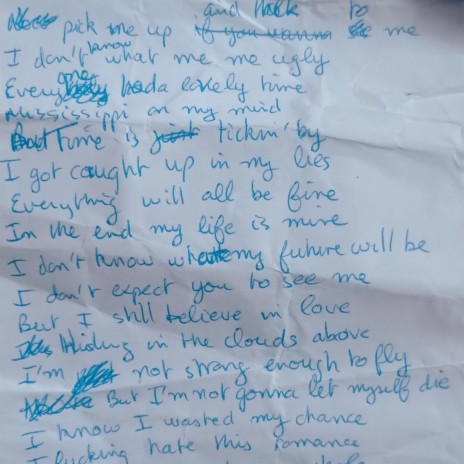 and to
pick me up if you wanna me
I don't know what me me ugly
Everyone had a lovely time
Mississippi on my mind
Time is just tickin' by
I got caught up in my lies
Everything will all be fine
In the end my life is mine
I don't know what my future will be
I don't expect you to see me
But I still believe in love
Hiding in the clouds above
I'm not strong enough to fly
But I'm not gonna let myself die
I know I wasted my chance
I fucking hate this romance